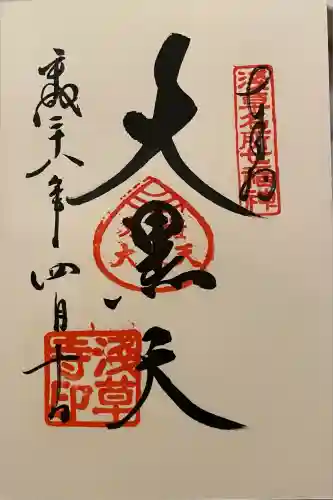 奉拝
浅草名所七福神
大黒天
平成二十八年四月十日
浅草寺印